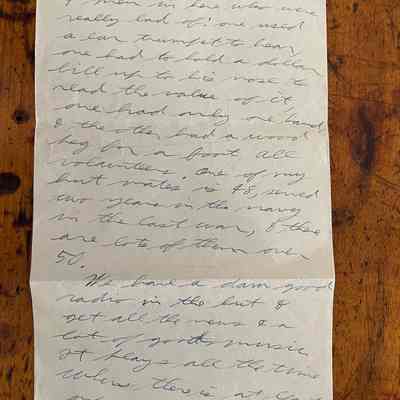 4 men in here who were
really bad off: one used
a ear trumpet to hear
one had to hold a dollar
bill up to his nose to
read the value of it
one had only one hand,
& the other had a wood
peg for a foot all
volunteers. One of my
hut mates is 48, served
two years in the navy
in the last war, & there
are lots of them over
50.
We have a darn good
radio in the hut &
get all the news & a
lot of good music
It plays all the time
when there is at least